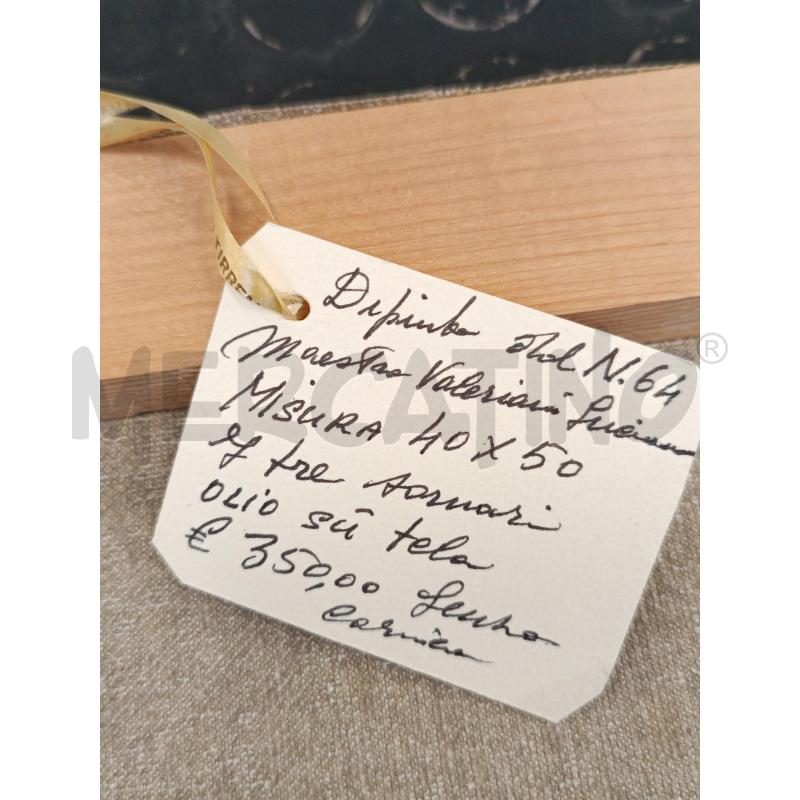 TIRREN
Dipinto dol N.64
Maestro Valeriani Luciano
MISURA 40 X 50
I tre somari
OLIO sù tela
€ 350,00 Senza
cornice
MERCATINO®